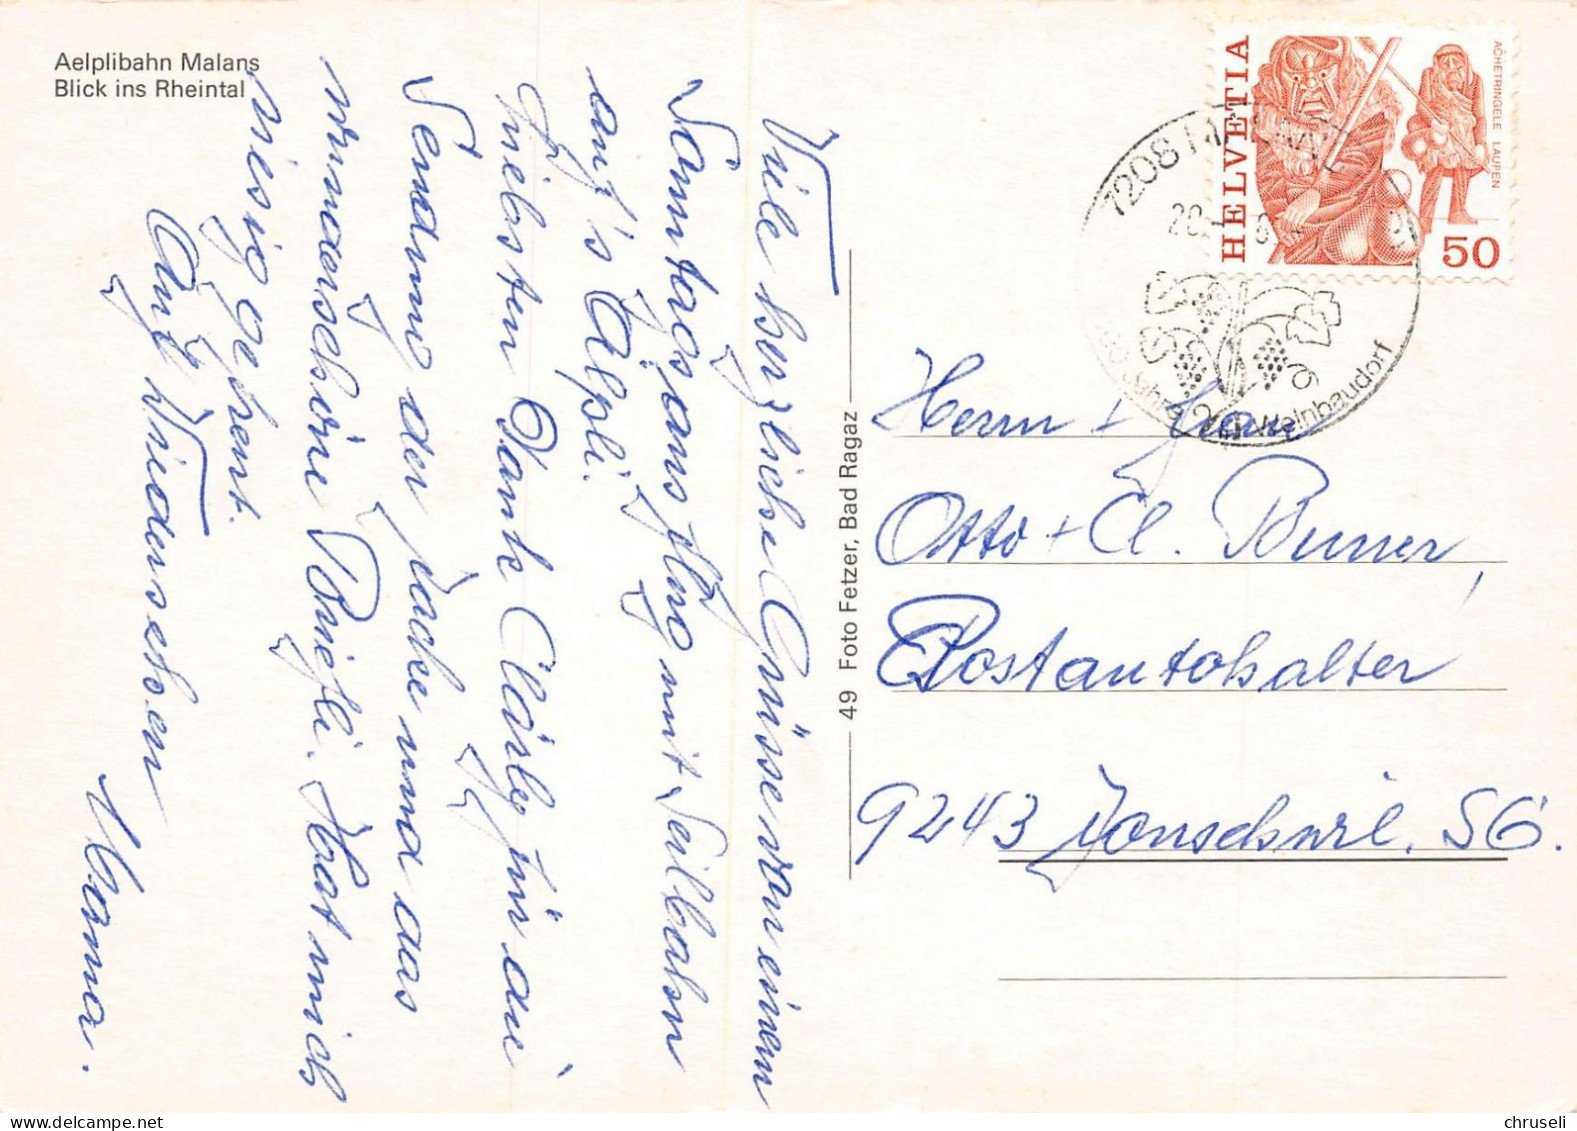 Aelplibahn Malans
Blick ins Rheintal
Viele herzliche Grüsse von einem
Sonntagsausflug mit Seilbahn
auf's Älpli.
Liebsten Dank Clärly für die
Sendung der Jacke und das
wunderschöne Briefli. Hat mich
riesig gefreut.
Auf Wiedersehen
Mama.
49 Foto Fetzer, Bad Ragaz
HELVETIA
ACHETRINGELE LAUPEN
50
7208
Jahre
Weinbaudorf
Herrn + Frau
Otto + Cl.
Postautohalter
9243 Jonschwil. SG.
chruseli